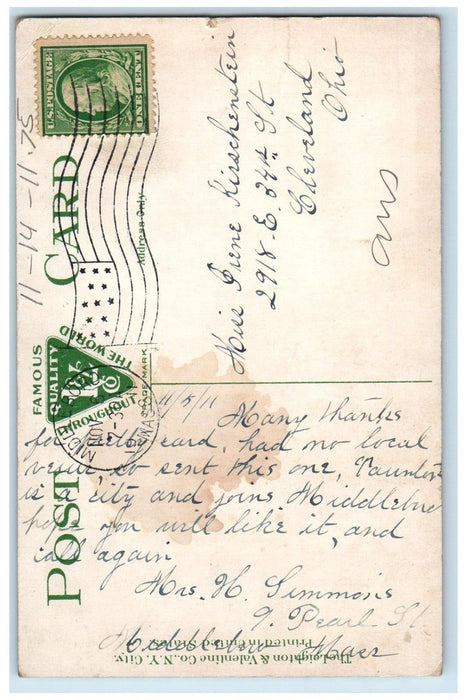 FAMOUS
QUALITY
THROUGHOUT
THE WORLD
TRADE MARK
POST CARD
Address Only
U.S. POSTAGE
ONE CENT
NOV
11-14-11.75
Miss Irene Kirschenstein
2918-E. 34th St
Cleveland
Ohio
ans
11/5/11
Many thanks
for card, had no local
view so sent this one, Taunton
is a city and joins Middleboro
hope you will like it, and
call again
Mrs. H. Simmons
9. Pearl. St.
Middleboro Mass
The Leighton & Valentine Co., N.Y. City.
Printed in United States.